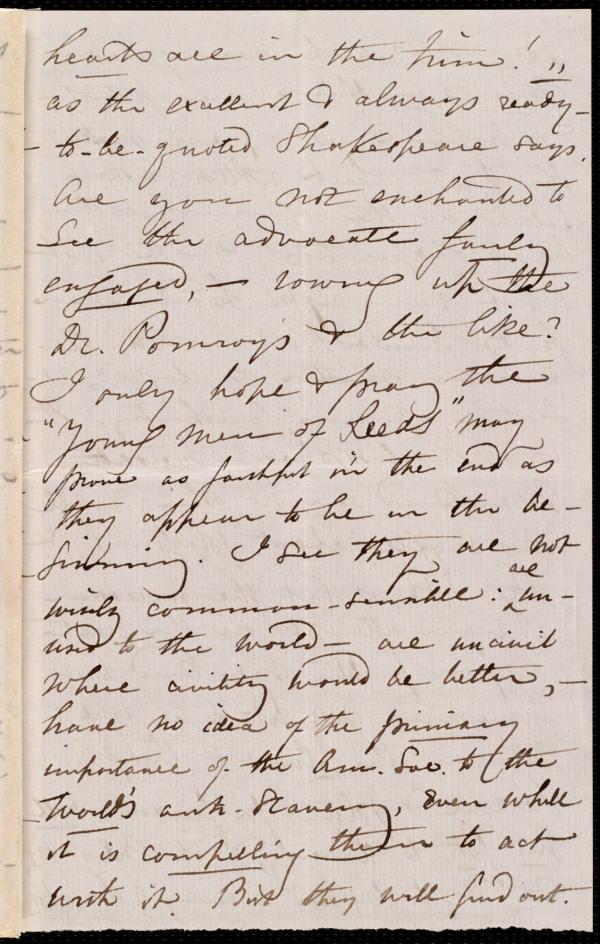 hearts are in the trim!"
as the excellent & always ready-
-to-be-quoted Shakespeare says.
Are you not enchanted to
see the advocate fairly
engaged, — rowing up the
Dr. Pomroys & the like?
I only hope & pray the
"Young men of Leeds" may
prove as faithful in the end as
they appear to be in the be-
-ginning. I see they are not
wisely common-sensible: are un-
used to the world — are uncivil
where civility would be better, —
have no idea of the primary
importance of the Am. Soc. to the
world's anti-slavery, even while
it is compelling them to act
with it. But they will find out.